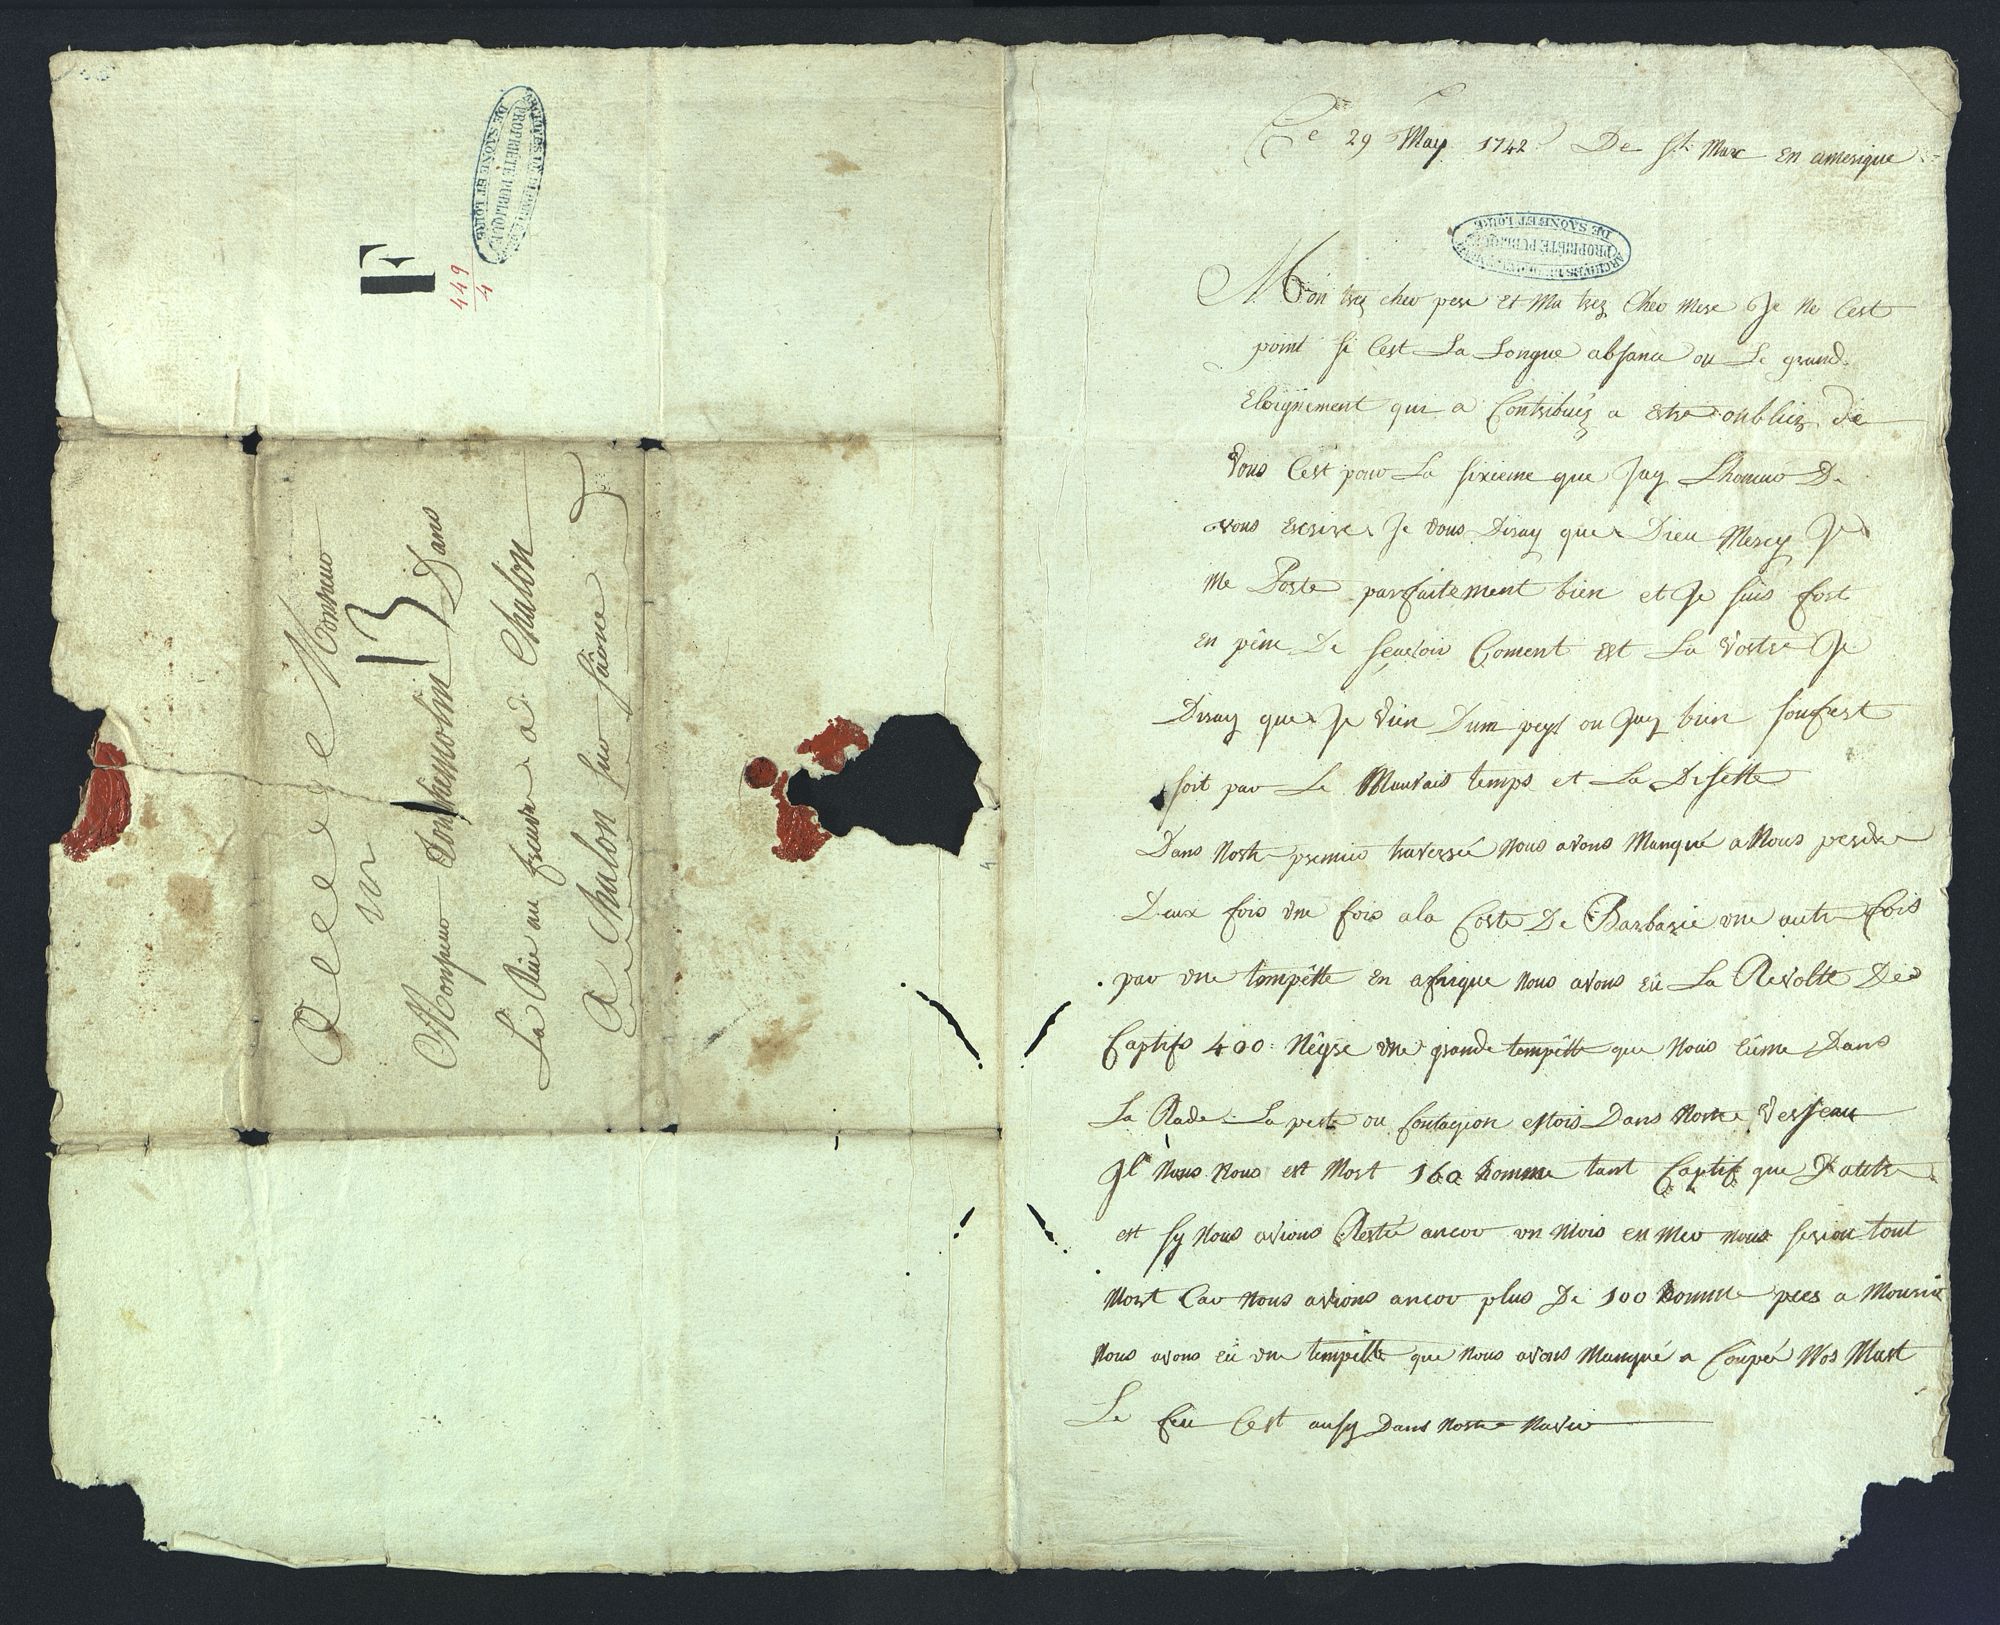 ARCHIVES DEPARTEMENTALES
PROPRIÉTÉ PUBLIQUE
DE SAONE ET LOIRE
F
449
4
A Monsieur
Monsieur 13 Dans
La Rüe au fevre a Chalon
A Chalon sur saone
Ce 29 May 1742 De St Marc en amerique
ARCHIVES DEPARTEMENTALES
PROPRIÉTÉ PUBLIQUE
DE SAONE ET LOIRE
Mon trez cher pere et Ma trez Cher Mere Je Ne Cest
point si Cest La Longue absance ou Le grand
Eloignement qui a Contribuéz a estre oubliéz de
Vous C'est pour La sixieme que Jay Lhoneur De
vous escrire Je vous Diray que Dieu Mercy Je
Me Porte parfaitement bien et Je suis fort
en pêine De sçavoir Coment est La vostre Je
Diray que Je vien Dun peys ou Jay bien soufert
soit par Le Mauvais temps et La Disette
Dans Nostre premier traversée Nous avons Manqué a Nous perdre
Deux fois vne fois ala Coste De Barbarie vne autre fois
par vne tempêtte en afrique Nous avons eü La Revolte Des
Captifs 400 Nêgre vne grande tempêtte que Nous eûme Dans
La Rade La peste ou Contagion estois Dans Nostre vesseau
Jl Nous Nous est Mort 160 homme tant Captif que D'autre
et sy Nous avions Resté ancor vn Mois en Mer Nous serion tout
Mort Car Nous avions ancor plus De 100 homme pres a Mourir
Nous avons eü vne tempêtte que Nous avons Manqué a Coupée Nos Mast
Le feu Cest ausy Dans Nostre Navir